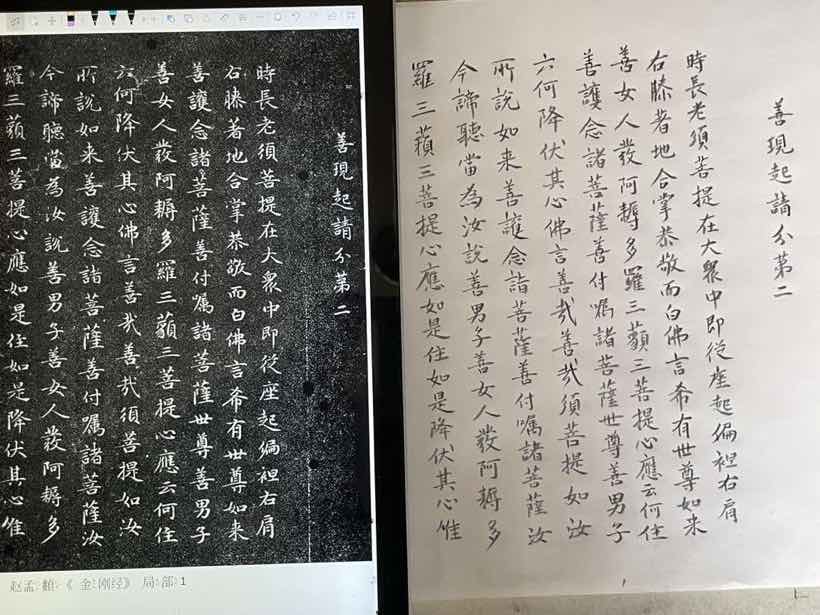 善現起請分第二
時長老須菩提在大衆中即從座起偏袒右肩
右膝著地合掌恭敬而白佛言希有世尊如来
善護念諸菩薩善付囑諸菩薩世尊善男子
善女人發阿耨多羅三藐三菩提心應云何住
云何降伏其心佛言善哉善哉須菩提如汝
所說如来善護念諸菩薩善付囑諸菩薩汝
今諦聽當為汝說善男子善女人發阿耨多
羅三藐三菩提心應如是住如是降伏其心惟
赵孟頫《金刚经》局部1
善現起請分第二
時長老須菩提在大衆中即從座起偏袒右肩
右膝著地合掌恭敬而白佛言希有世尊如来
善女人發阿耨多羅三藐三菩提心應云何住
善護念諸菩薩善付囑諸菩薩世尊善男子
云何降伏其心佛言善哉善哉須菩提如汝
所說如来善護念諸菩薩善付囑諸菩薩汝
今諦聽當為汝說善男子善女人發阿耨多
羅三藐三菩提心應如是住如是降伏其心惟